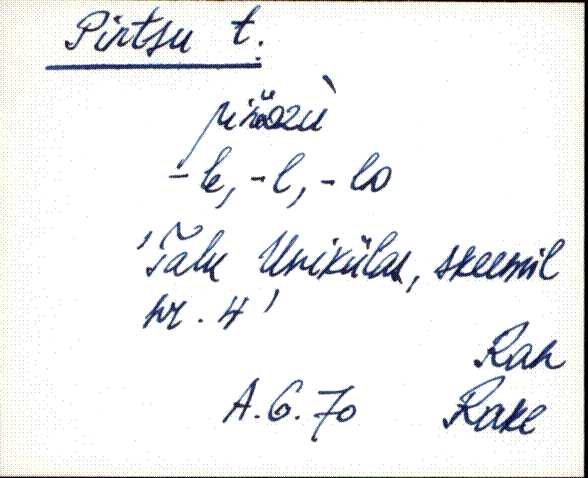 Pirtsu t.
-le, -l, -lo
'Talu Uniküla, skeemil
nr. 4'
Ran
A. G. 70 Rake